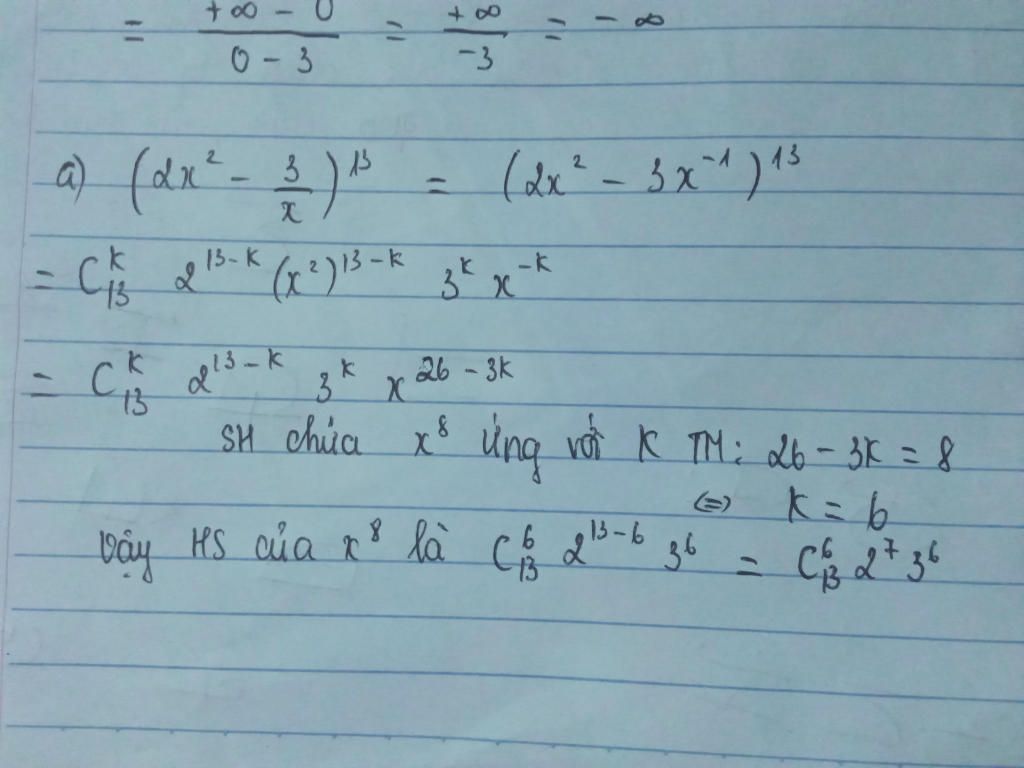 = (+∞ - 0)/(0 - 3) = (+∞)/(-3) = - ∞
a) (2x² - 3/x)¹³ = (2x² - 3x⁻¹)¹³
= C₁₃ᵏ 2¹³⁻ᵏ (x²)¹³⁻ᵏ 3ᵏ x⁻ᵏ
= C₁₃ᵏ 2¹³⁻ᵏ 3ᵏ x²⁶⁻³ᵏ
SH chứa x⁸ ứng với K TM: 26 - 3K = 8
⇔ K = 6
Vậy HS của x⁸ là C₁₃⁶ 2¹³⁻⁶ 3⁶ = C₁₃⁶ 2⁷ 3⁶